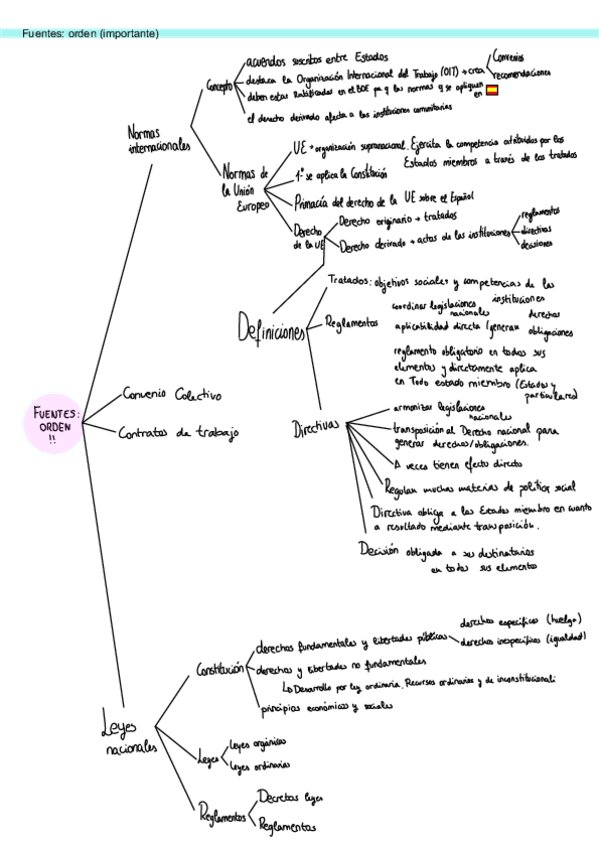 Fuentes: orden (importante)
FUENTES:
ORDEN
!!
Normas
internacionales
Concepto
acuerdos suscritos entre Estados
destaca la Organización Internacional del Trabajo (OIT) → crea
Convenios
recomendaciones
deben estar Ratificadas en el BOE pa q las normas q se apliquen
en 🇪🇸
el derecho derivado afecta a las instituciones comunitarias
Normas de
la Unión
Europea
UE → organización supranacional. Ejercita la competencia atribuidas por los
Estados miembros a través de los tratados
1º se aplica la Constitución
Primacía del derecho de la UE sobre el Español
Derecho
de la UE
Derecho originario → tratados
Derecho derivado → actos de las instituciones
reglamentos
directivas
decisiones
Definiciones
Tratados: objetivos sociales y competencias de las
instituciones
Reglamentos
coordinar legislaciones
nacionales
aplicabilidad directa (generan
derechos
obligaciones
reglamento obligatorio en todos sus
elementos y directamente aplica
en Todo estado miembro (Estados y
particulares)
Directivas
armonizar legislaciones
nacionales
transposición al Derecho nacional para
generar derechos/obligaciones.
A veces tienen efecto directo
Regulan muchas materias de política social
Directiva obliga a los Estados miembro en cuanto
a resultado mediante transposición.
Decisión obligada a sus destinatarios
en todos sus elementos
Convenio Colectivo
Contratos de trabajo
Leyes
nacionales
Constitución
derechos fundamentales y libertades públicas
derechos específicos (huelga)
derechos inespecíficos (igualdad)
derechos y libertades no fundamentales
↳ Desarrollo por ley ordinaria. Recursos ordinarios y de inconstitucionali
principios económicos y sociales
Leyes
leyes orgánicas
leyes ordinarias
Reglamentos
Decretos leyes
Reglamentos